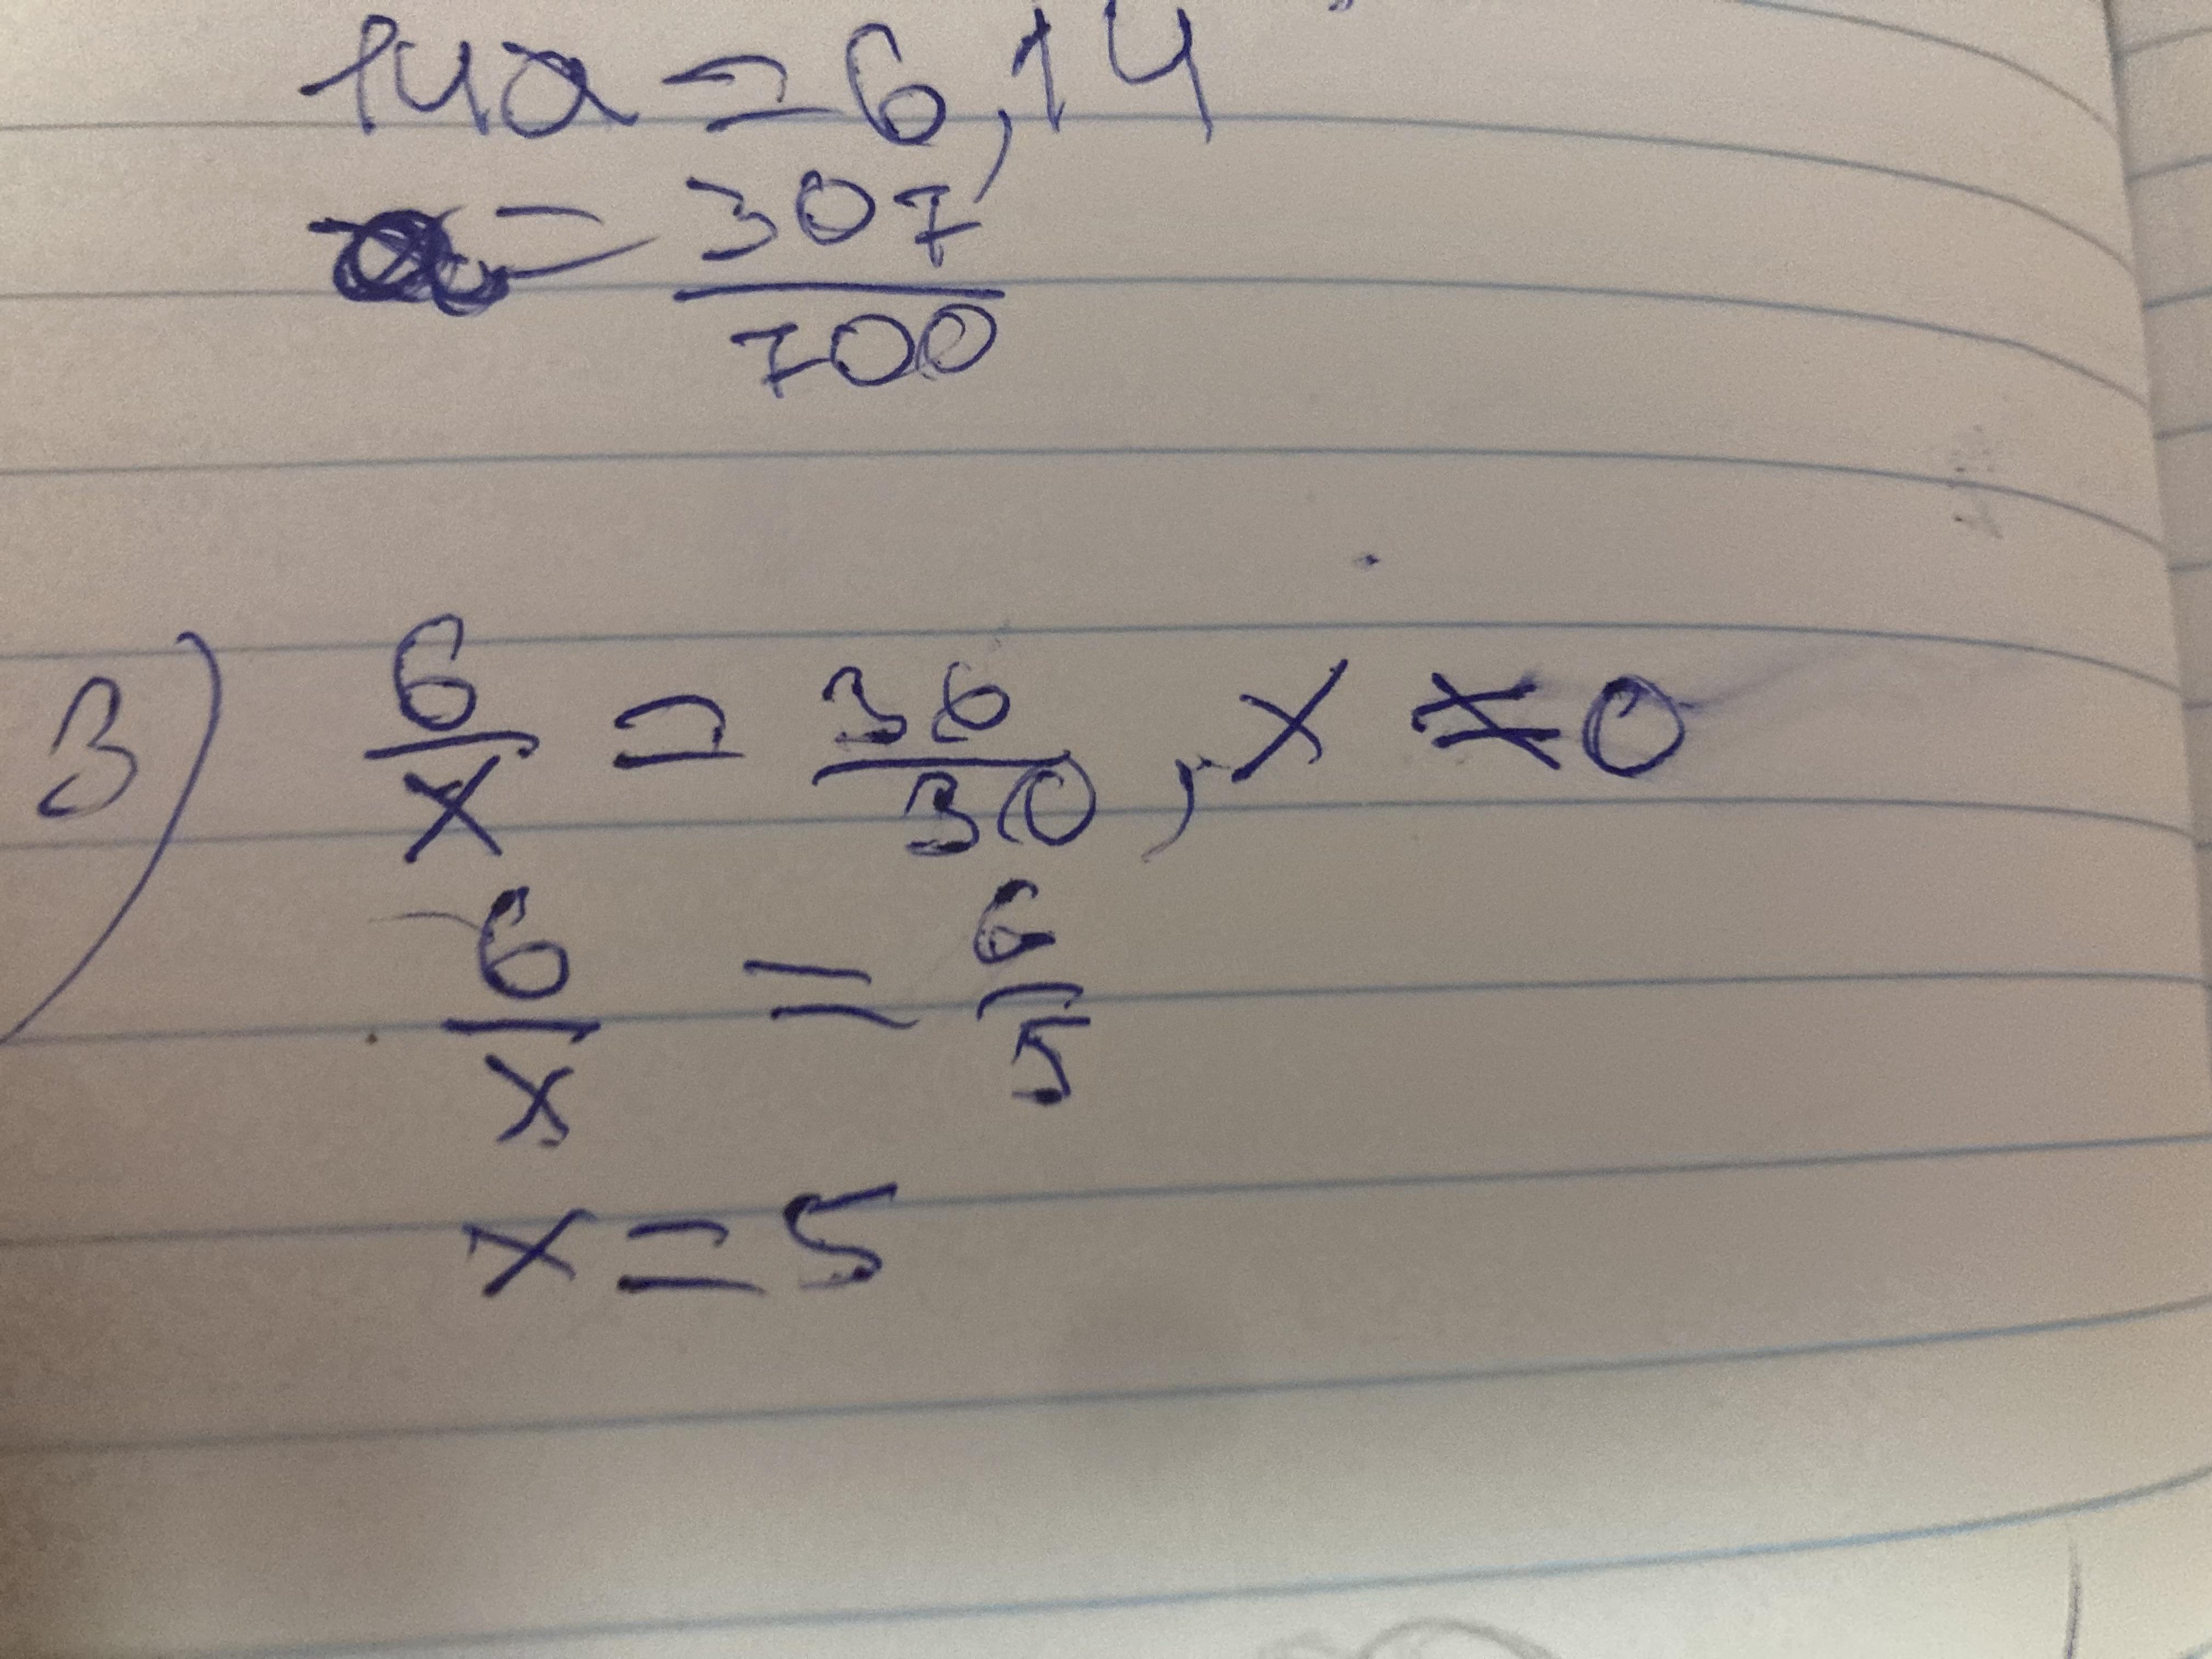 14a = 6,14
a = 307/700
3) 6/x = 36/30, x ≠ 0
6/x = 6/5
x = 5